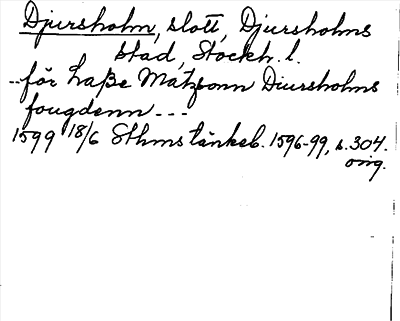 Djursholm, slott, Djursholms
stad, Stockh. l.
--för Laße Matzsonn Diursholms
fougdenn ---
1599 18/6 Sthms tänkeb. 1596-99, s. 304.
orig.